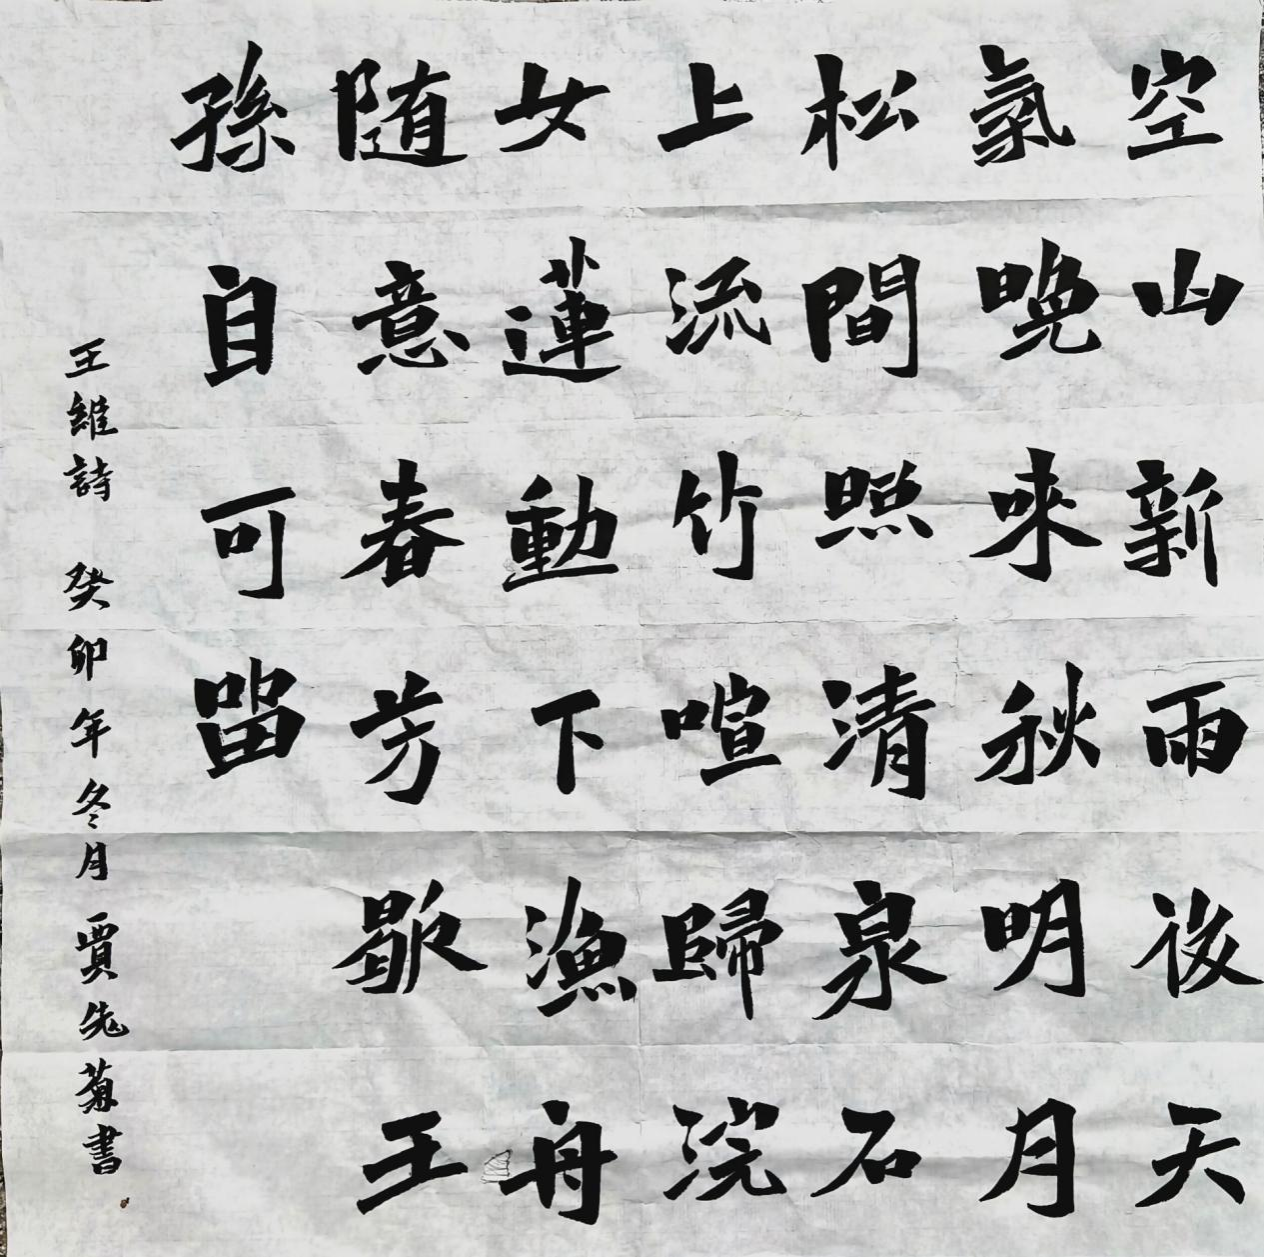 空山新雨後天
氣晚來秋明月
松間照清泉石
上流竹喧歸浣
女蓮動下漁舟
随意春芳歇王
孫自可留
王維詩 癸卯年冬月 賈先菊書